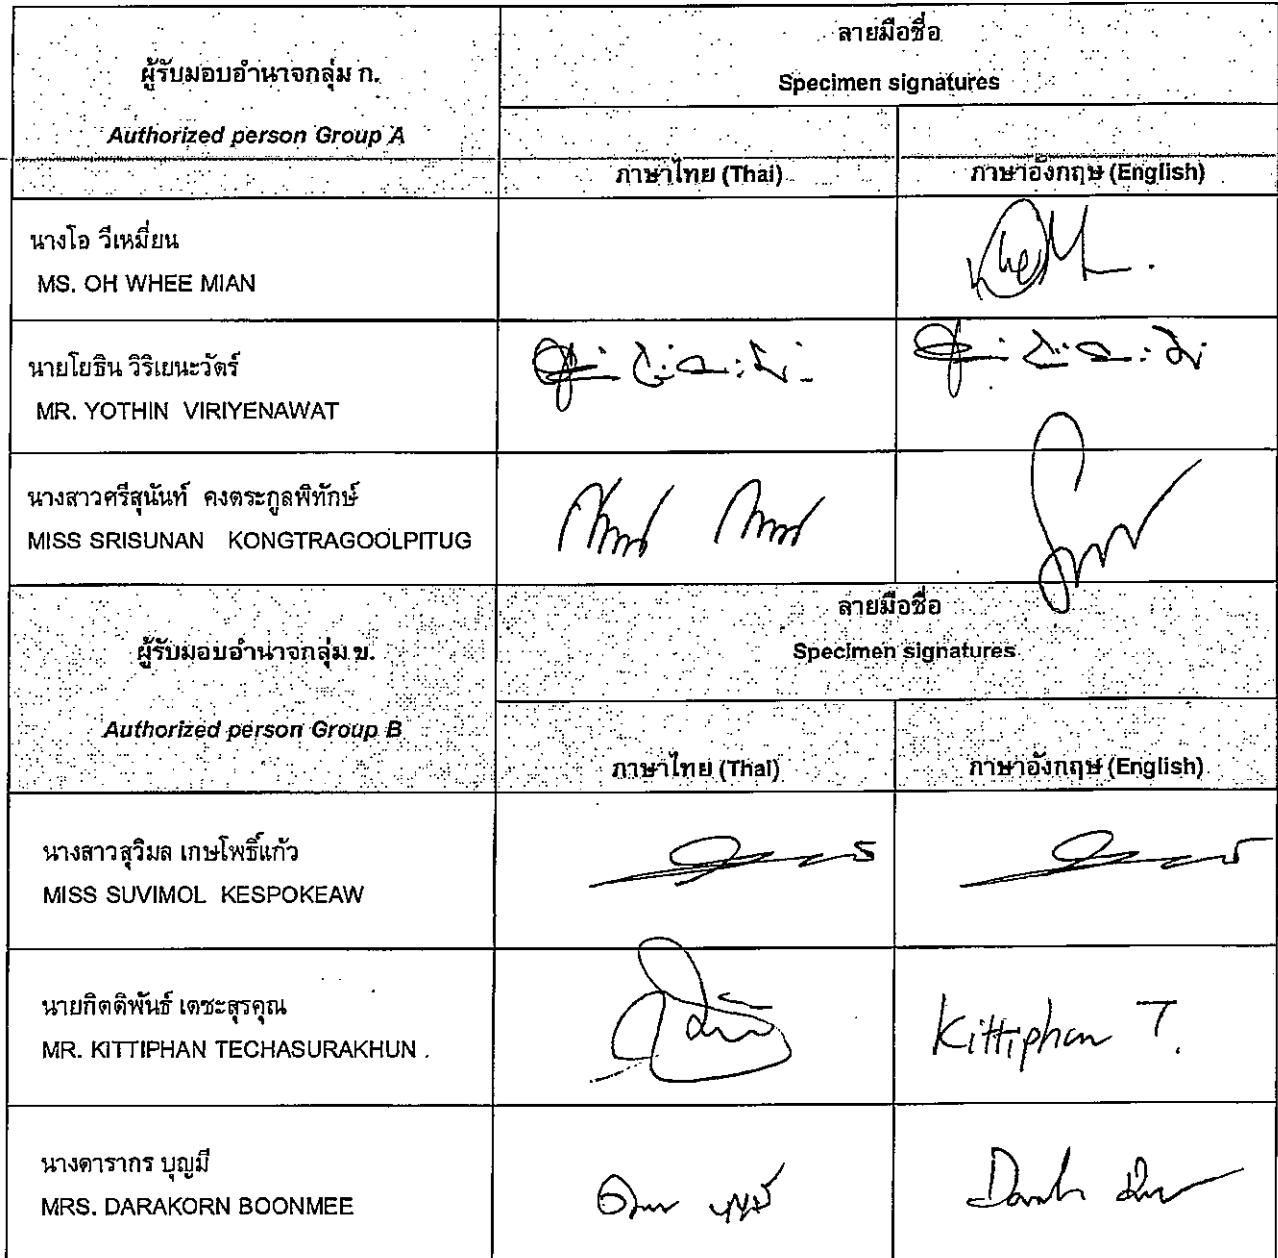 ผู้รับมอบอำนาจกลุ่ม ก.
Authorized person Group A
ลายมือชื่อ
Specimen signatures
ภาษาไทย (Thai)
ภาษาอังกฤษ (English)
นางโอ วีเหมี่ยน
MS. OH WHEE MIAN
นายโยธิน วิริเยนะวัตร์
MR. YOTHIN VIRIYENAWAT
นางสาวศรีสุนันท์ คงตระกูลพิทักษ์
MISS SRISUNAN KONGTRAGOOLPITUG
ผู้รับมอบอำนาจกลุ่ม ข.
Authorized person Group B
ลายมือชื่อ
Specimen signatures
ภาษาไทย (Thai)
ภาษาอังกฤษ (English)
นางสาวสุวิมล เกษโพธิ์แก้ว
MISS SUVIMOL KESPOKEAW
นายกิตติพันธ์ เตชะสุรคุณ
MR. KITTIPHAN TECHASURAKHUN .
Kittiphan T.
นางดารากร บุญมี
MRS. DARAKORN BOONMEE